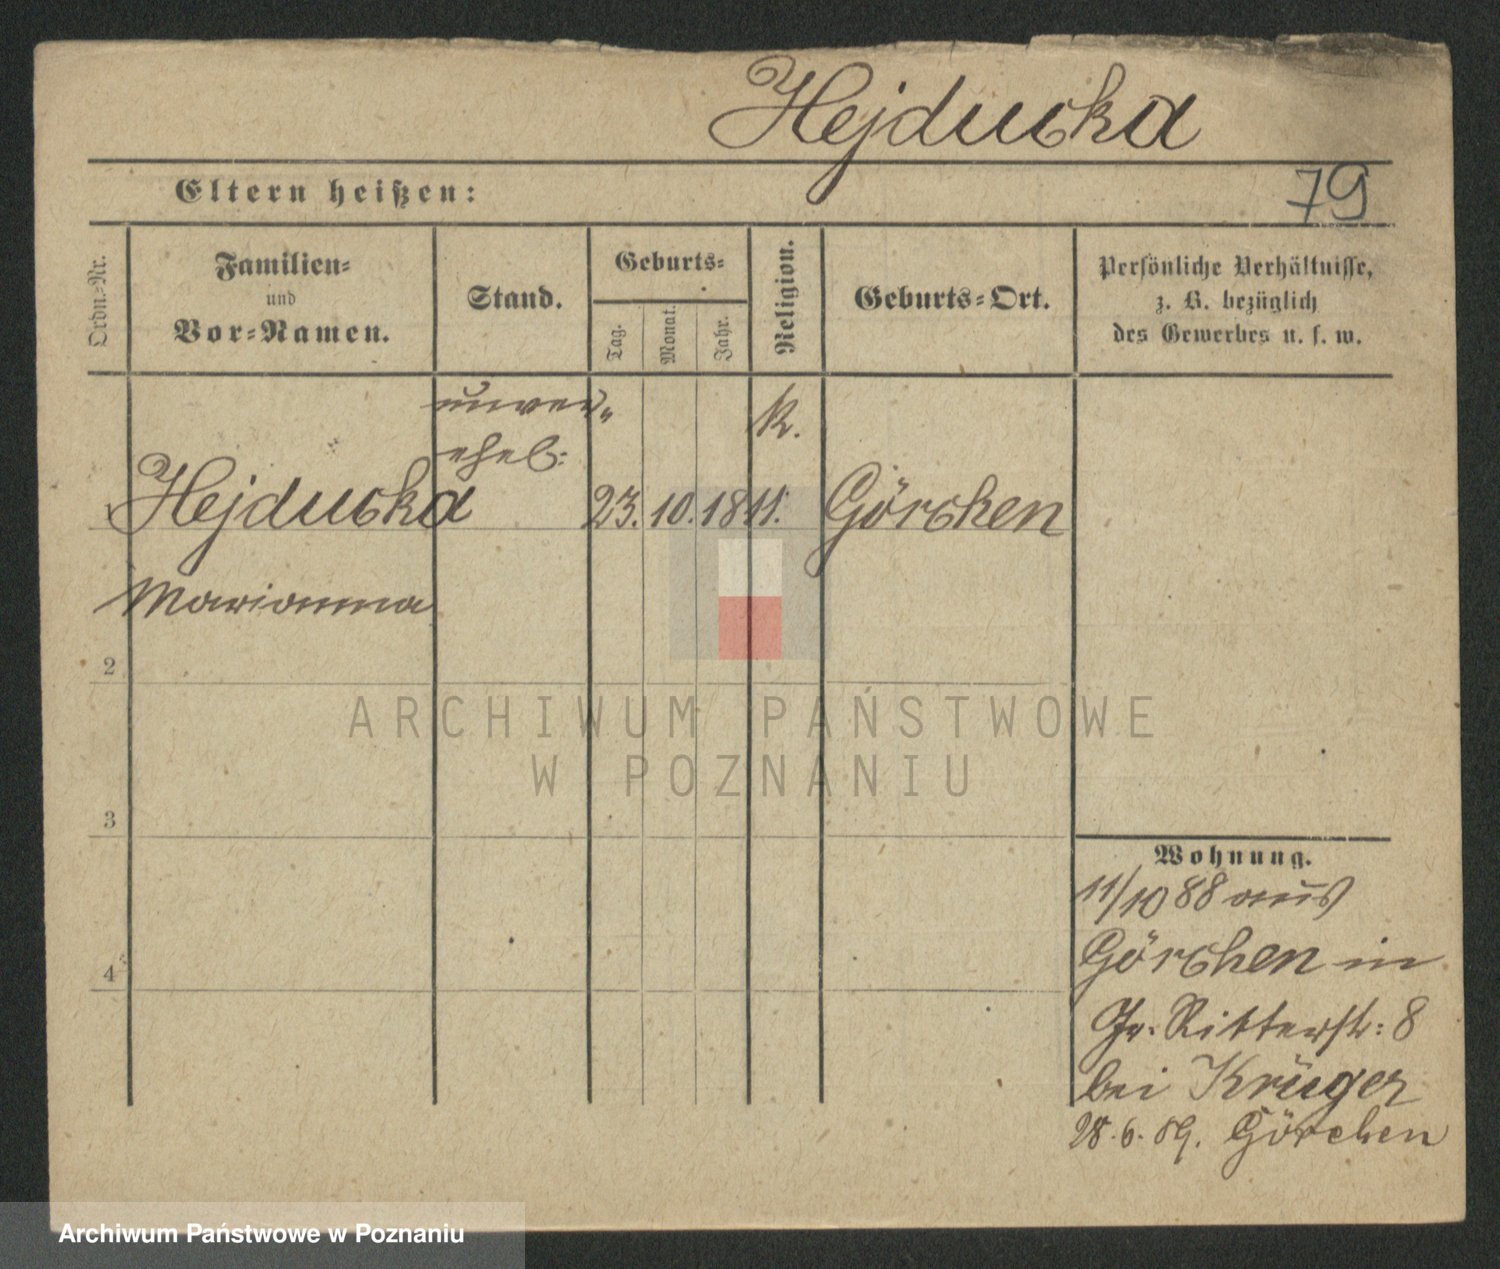 Hejducka
79
Eltern heißen:
Ordn.-Nr.
Familien-
und
Vor-Namen.
Stand.
Geburts-
Tag.
Monat.
Jahr.
Religion.
Geburts-Ort.
Persönliche Verhältnisse,
z. B. bezüglich
des Gewerbes u. s. w.
unver-
ehel:
k.
1 Hejducka 23. 10. 1811. Görchen
Marianna
2
ARCHIWUM PAŃSTWOWE
W POZNANIU
3
Wohnung.
11/10 88 aus
Görchen in
4
Gr. Ritterstr: 8
bei Krüger
28. 6. 89. Görchen
Archiwum Państwowe w Poznaniu